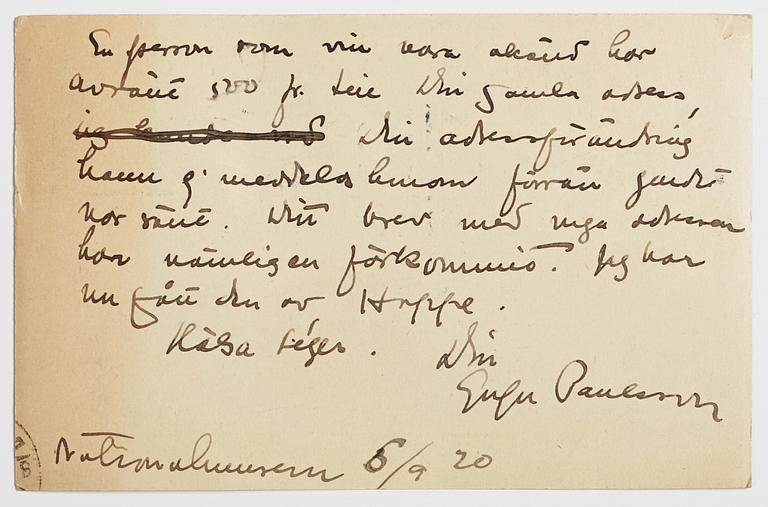 En person som vill vara okänd har
avsänt 500 fr. till Din gamla adress,
Din adressförändring
hann ej meddelas honom förrän godset
var sänt. Ditt brev med nya adressen
har nämligen förkommit. Jag har
nu fått den av Hoppe.
Hälsa Léger. Din
Gregor Paulsson
Nationalmuseum 6/9 20